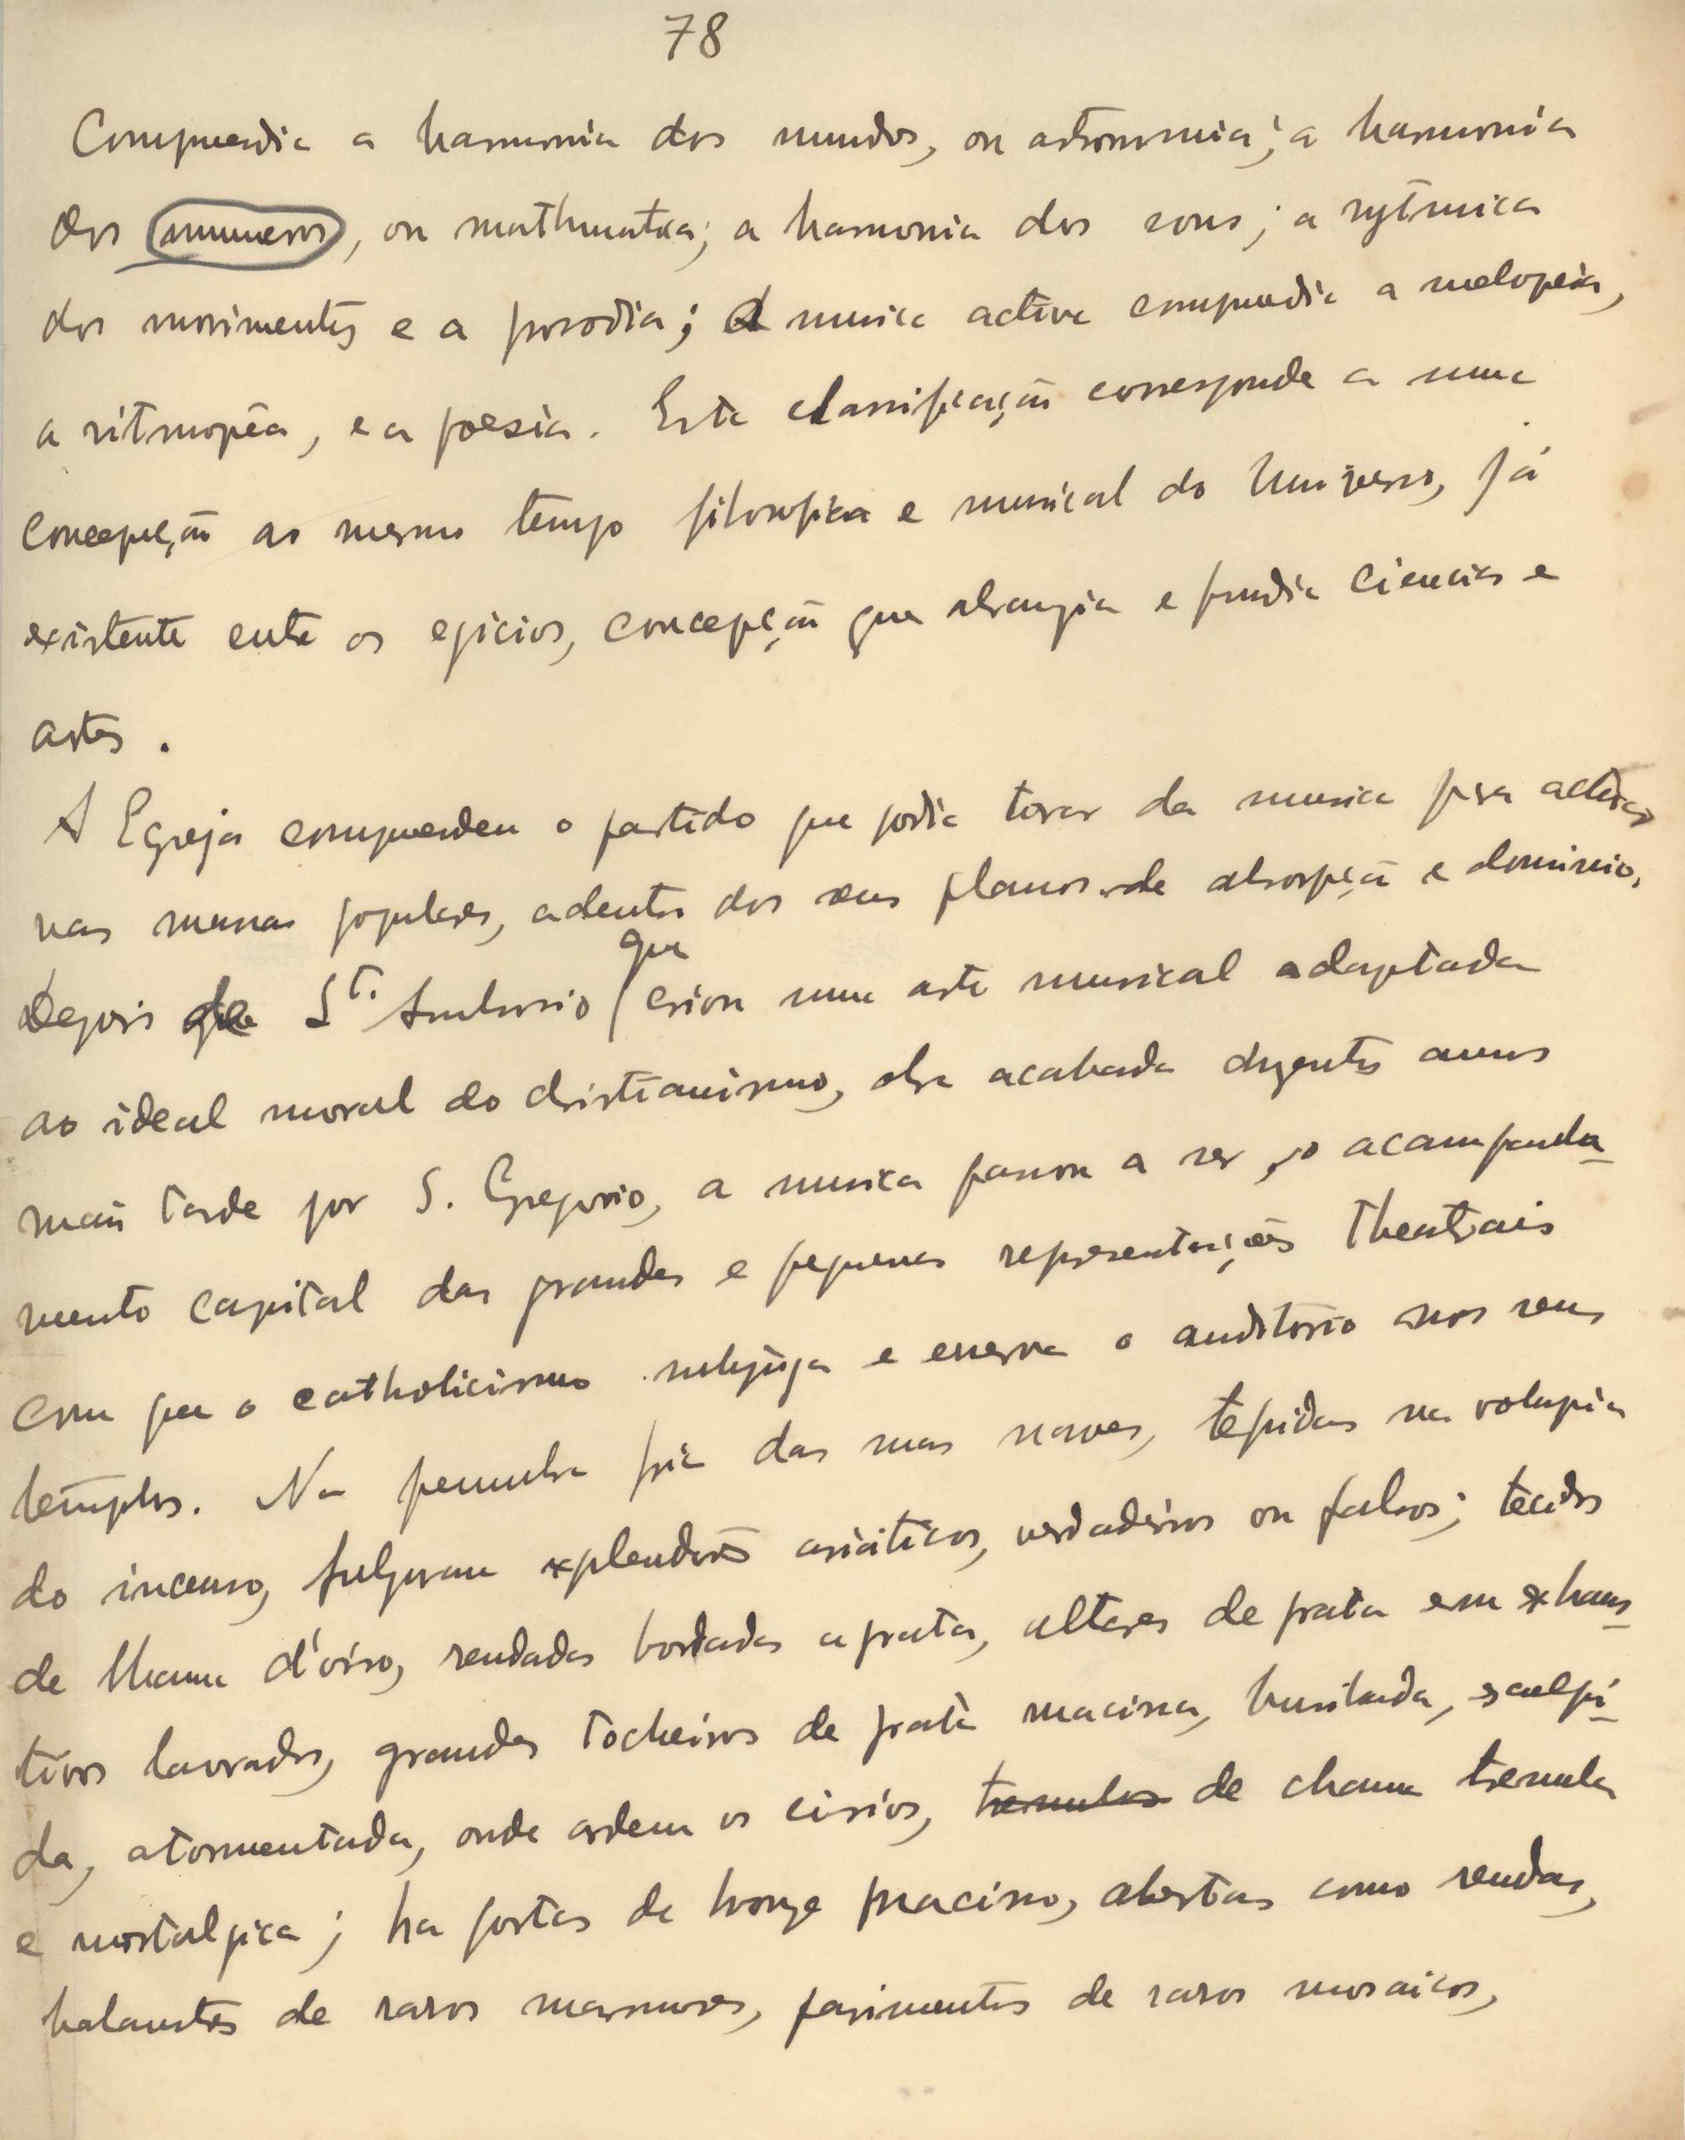 78
Comprendia a harmonia dos mundos, ou astronomia; a harmonia
dos numeros, ou mathmatica; a harmonia dos sons; a rytmica
dos movimentos e a prosodia; A musica activa comprendia a melopeia,
a ritmopêa, e a poesia. Esta classificação corresponde a uma
concepção ao mesmo tempo filosofica e musical do Universo, já
existente entre os egicios, concepção que abrangia e fundia ciencias e
artes.
A Egreja comprendeu o partido que podia tirar da musica pra
nas massas populares, adentro dos seus planos de absorpção e dominio.
Depois de Sto. Ambrosio que criou uma arte musical adaptada
ao ideal moral do christianismo, obra acabada duzentos annos
mais tarde por S. Gregorio, a musica passou a ser o acompanha-
mento capital das grandes e pequenas representações theatrais
com que o catholicismo subjuga e enerva o auditorio nos seus
templos. Na penumbra fria das suas naves, tepidas na volupia
do incenso, fulguram explendores asiáticos, verdadeiros ou falsos; tecidos
de lhama d'oiro, rendados bordados a prata, altares de prata em exhaus-
tivos lavrados, grandes tocheiros de prata macissa, burilada, esculpi-
da, atormentada, onde ardem os cirios, tremulos de chama tremula
e nostalgica; ha portas de bronze macisso, abertas como rendas,
balaustres de raros marmores, pavimentos de raros mosaicos,